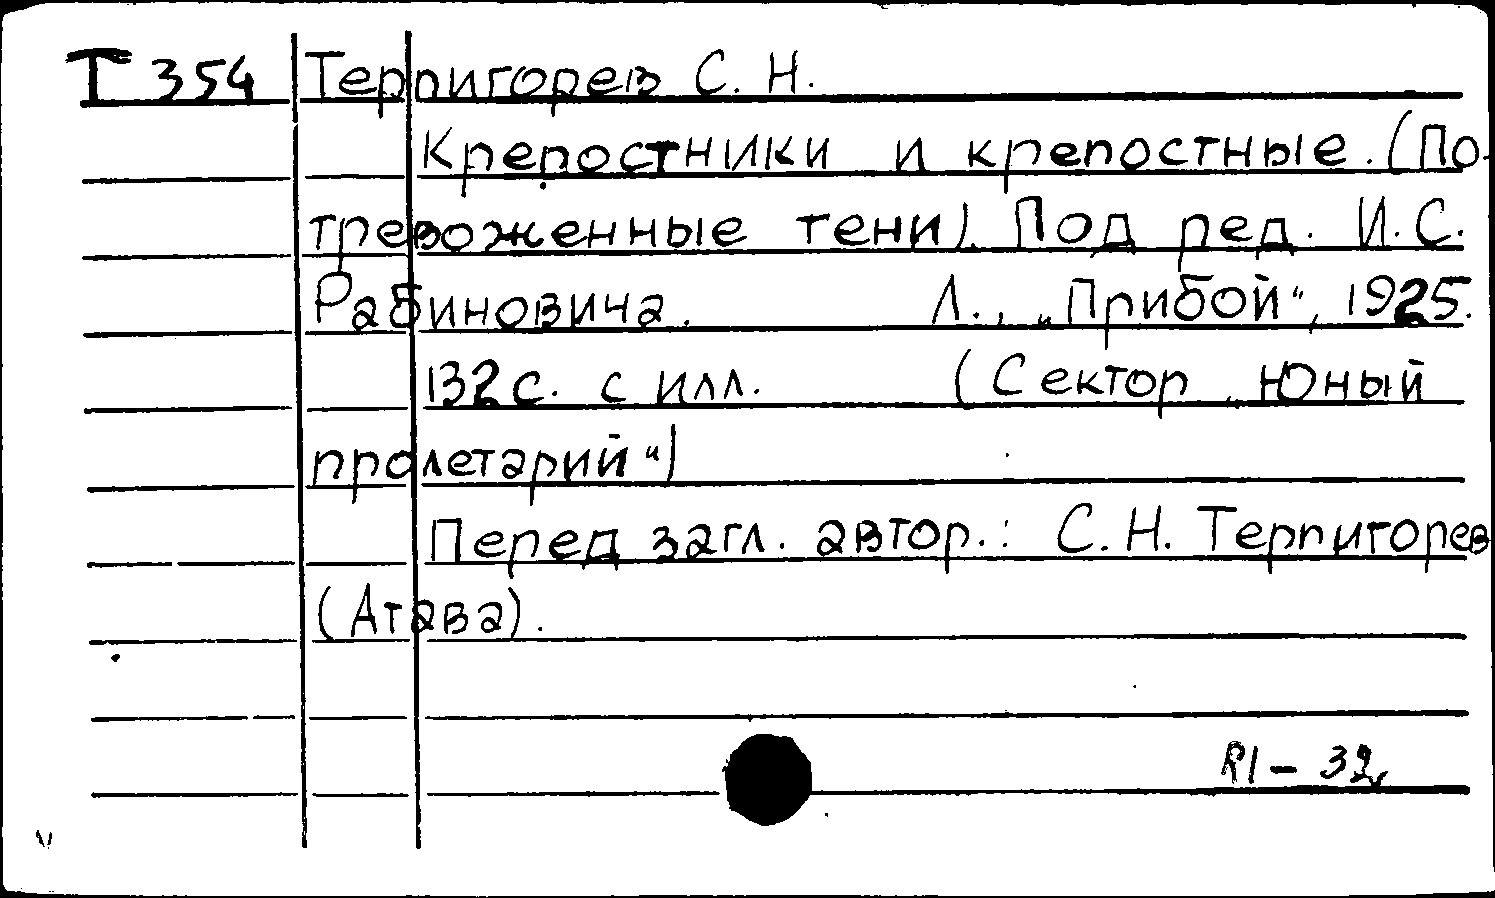 Т 354 Терпигорев С. Н.
Крепостники и крепостные. (По-
тревоженные тени). Под ред. И. С.
Рабиновича. Л., „Прибой“, 1925.
132 с. с илл. (Сектор „Юный
пролетарий“)
Перед загл. автор.: С. Н. Терпигорев
(Атава).
RI – 32